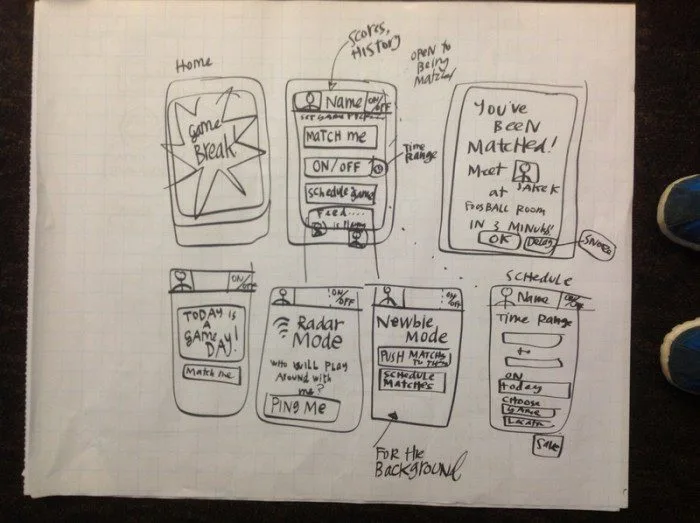 Home
Game
Break!
Scores,
History
Name
ON/OFF
MATCH me
ON/OFF
Schedule game
Feed....
is Playing
Time
Range
OPEN TO
Being
Matched
You've
BEEN
Matched!
Meet
at
FOOSBALL ROOM
IN 3 Minutes!
OK
Delay
SNOOZE
ON/OFF
TODAY IS
A
GAME
DAY!
Match me
ON/OFF
Radar
Mode
WHO WILL PLAY
Around with
me?
PING Me
ON/OFF
Newbie
Mode
PUSH MATCHS
TO THEM
SCHEDULE
MATCHES
FOR the
Background
SCHEDULE
Name
ON/OFF
Time Range
to
ON
today
CHOOSE
GAME
Locatn
Save